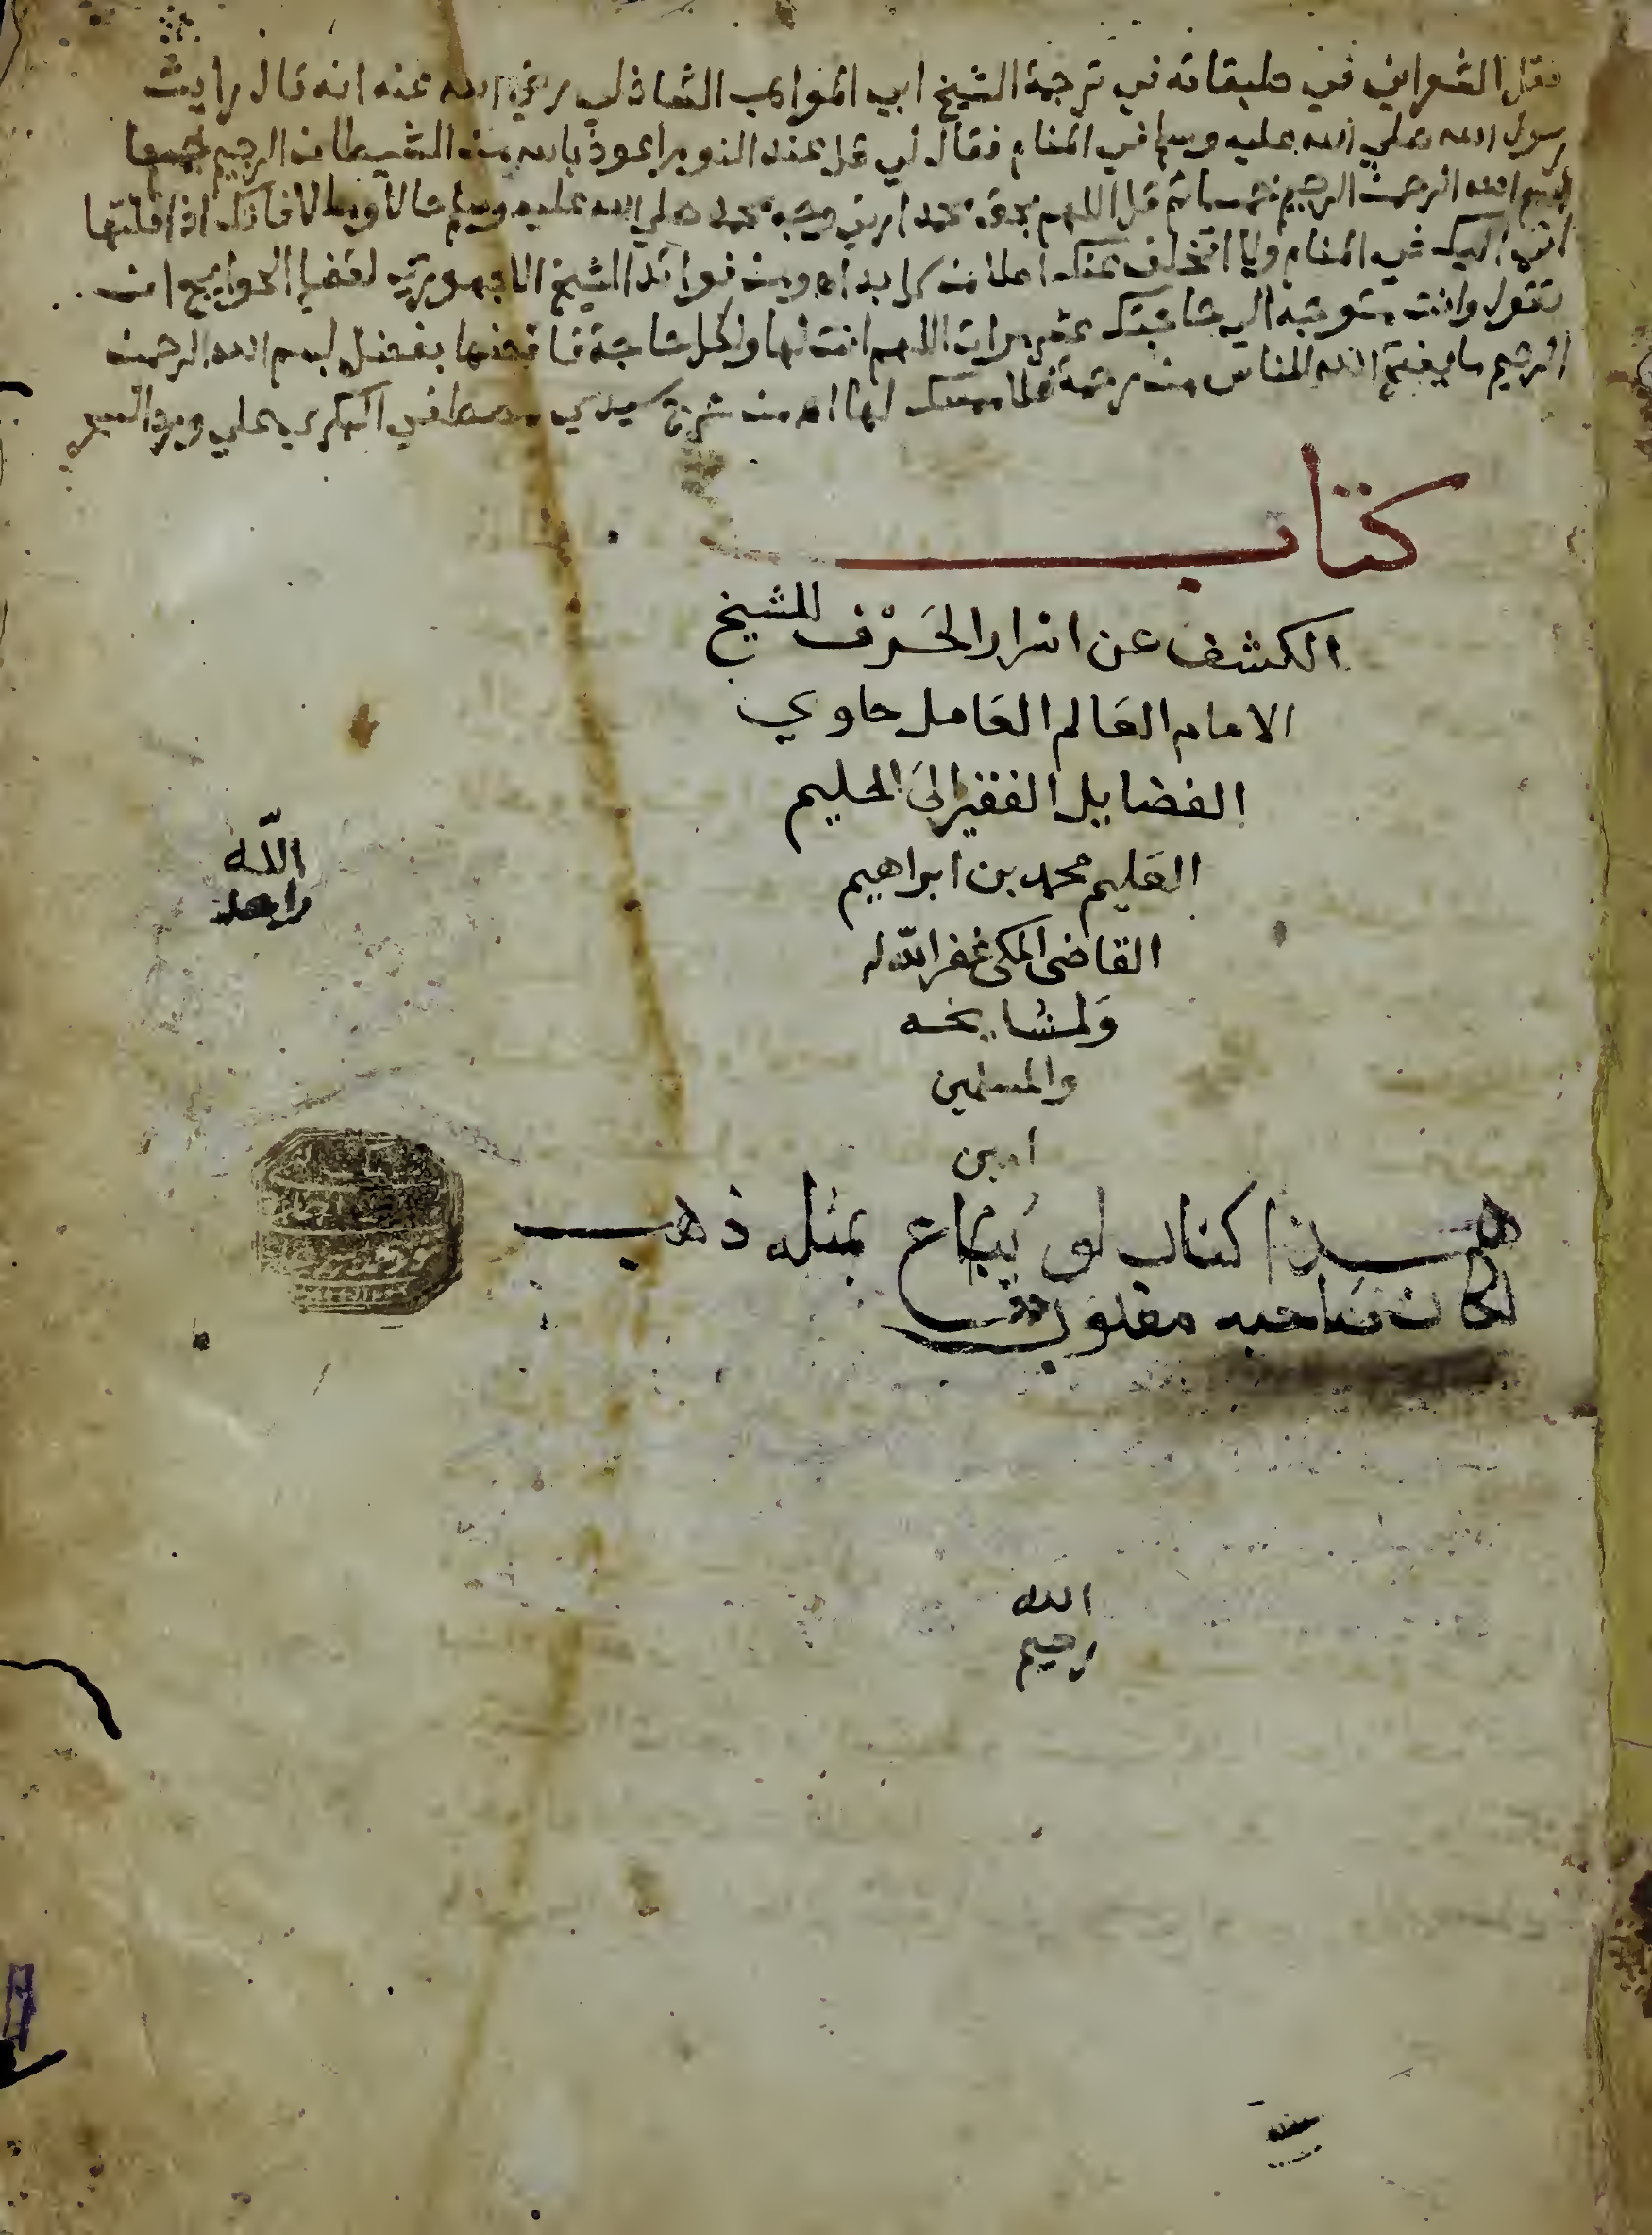 نقل الشعراني في طبقاته في ترجمة الشيخ ابي المواهب الشاذلي رضي الله عنه انه قال رايت
رسول الله صلي الله عليه وسلم في المنام فقال لي قل عند النوم اعوذ بالله من الشيطان الرجيم خمسا
بسم الله الرحمن الرحيم خمسا ثم قل اللهم بحق محمد ارني وجه محمد صلي الله عليه وسلم حالا ومالا فانك اذا قلتها
اتي اليك في المنام ولا اتخلف عنك اصلا ومن فوائد الشيخ الاجهوري لقضا الحوايج ان
تقول وانت متوجه الي حاجتك عشر مرات اللهم انت لها ولكل حاجة فاقضها بفضل بسم الله الرحمن
الرحيم ما يفتح الله للناس من رحمة فلا ممسك لها اه من شرح سيدي مصطفي البكري علي ورد السحر
كتاب
الكشف عن اسرار الحَرْف للشيخ
الامام العَالم العَامل حاوي
الفضايل الفقير الىَ الحليم
العَليم محمد بن ابراهيم
القاضى المكى غفر اللّه له
وَلمشايخه
والمسلمين
امين
اللّه
هذا كتاب لو يُبَاع بمثله ذهب
لكان صَاحبه مغلوب
الله
رحيم